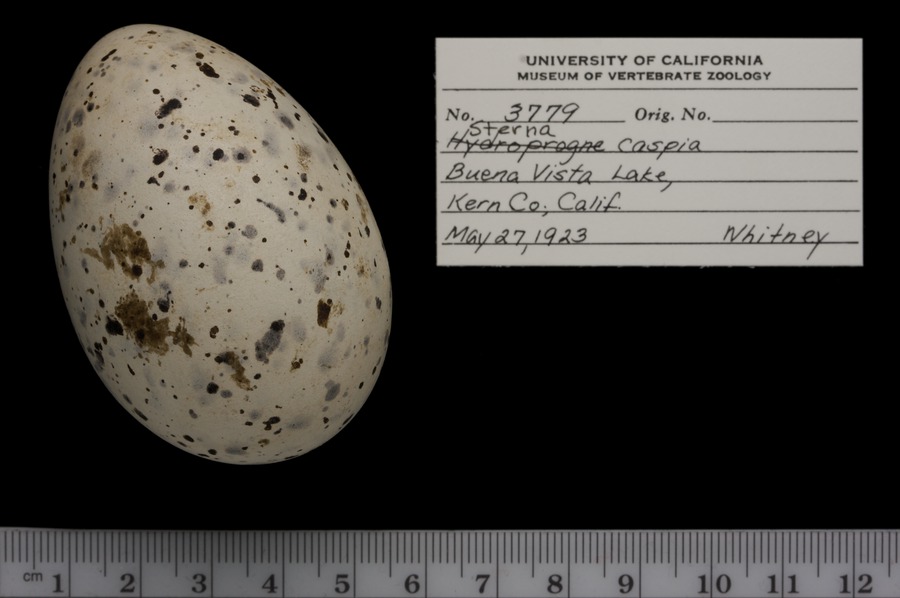 UNIVERSITY OF CALIFORNIA
MUSEUM OF VERTEBRATE ZOOLOGY
No. 3779 Orig. No.
Sterna
Hydroprogne caspia
Buena Vista Lake,
Kern Co., Calif.
May 27, 1923 Whitney
cm 1 2 3 4 5 6 7 8 9 10 11 12